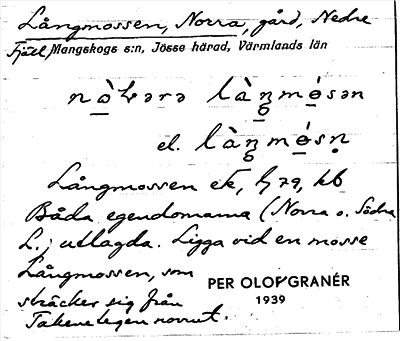 Långmossen, Norra, gård, Nedre
Fjäll, Mangskogs s:n, Jösse härad, Värmlands län
Långmossen ek,
Båda egendomarna (Norra o. Södra
L.) utlagda. Ligga vid en mosse
Långmossen, som
sträcker sig från
norrut.
PER OLOF GRANÉR
1939